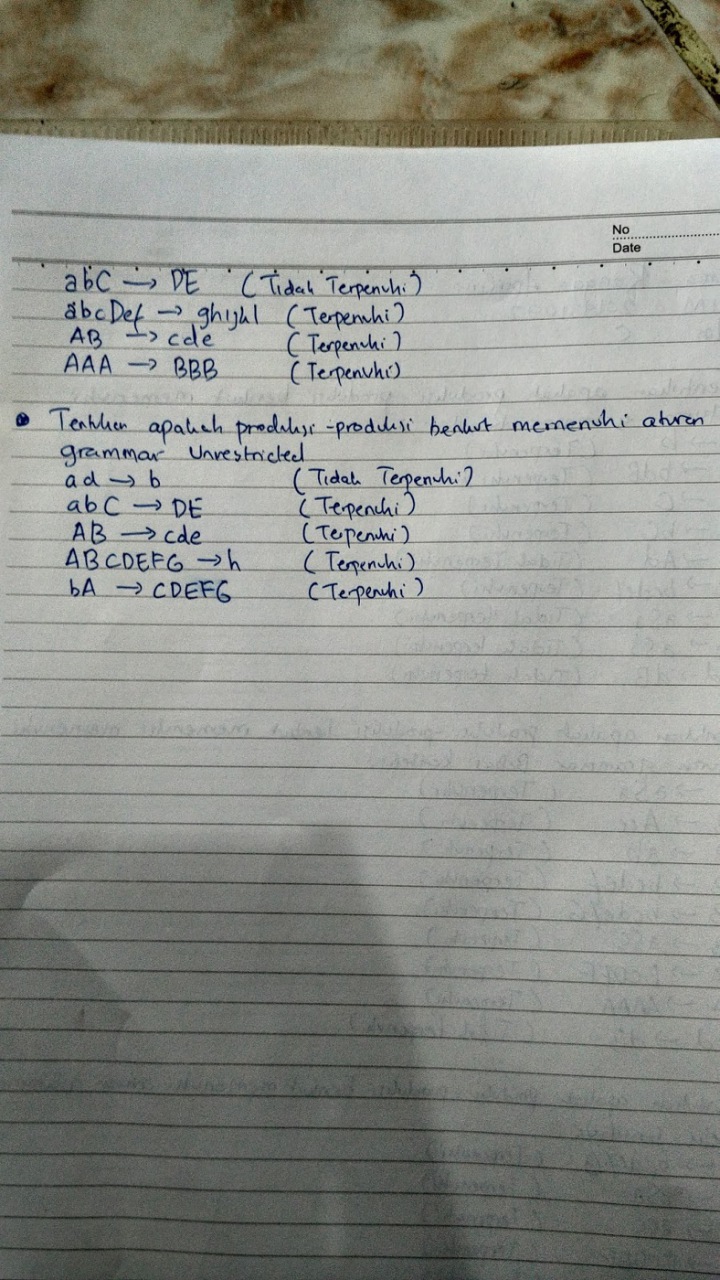 No
Date
abC → DE (Tidak Terpenuhi)
abcDef → ghijkl (Terpenuhi)
AB → cde (Terpenuhi)
AAA → BBB (Terpenuhi)
Tentukan apakah produksi-produksi berikut memenuhi aturan
grammar Unrestricted
ad → b (Tidak Terpenuhi)
abC → DE (Terpenuhi)
AB → cde (Tepenuhi)
ABCDEFG → h (Terpenuhi)
bA → CDEFG (Terpenuhi)